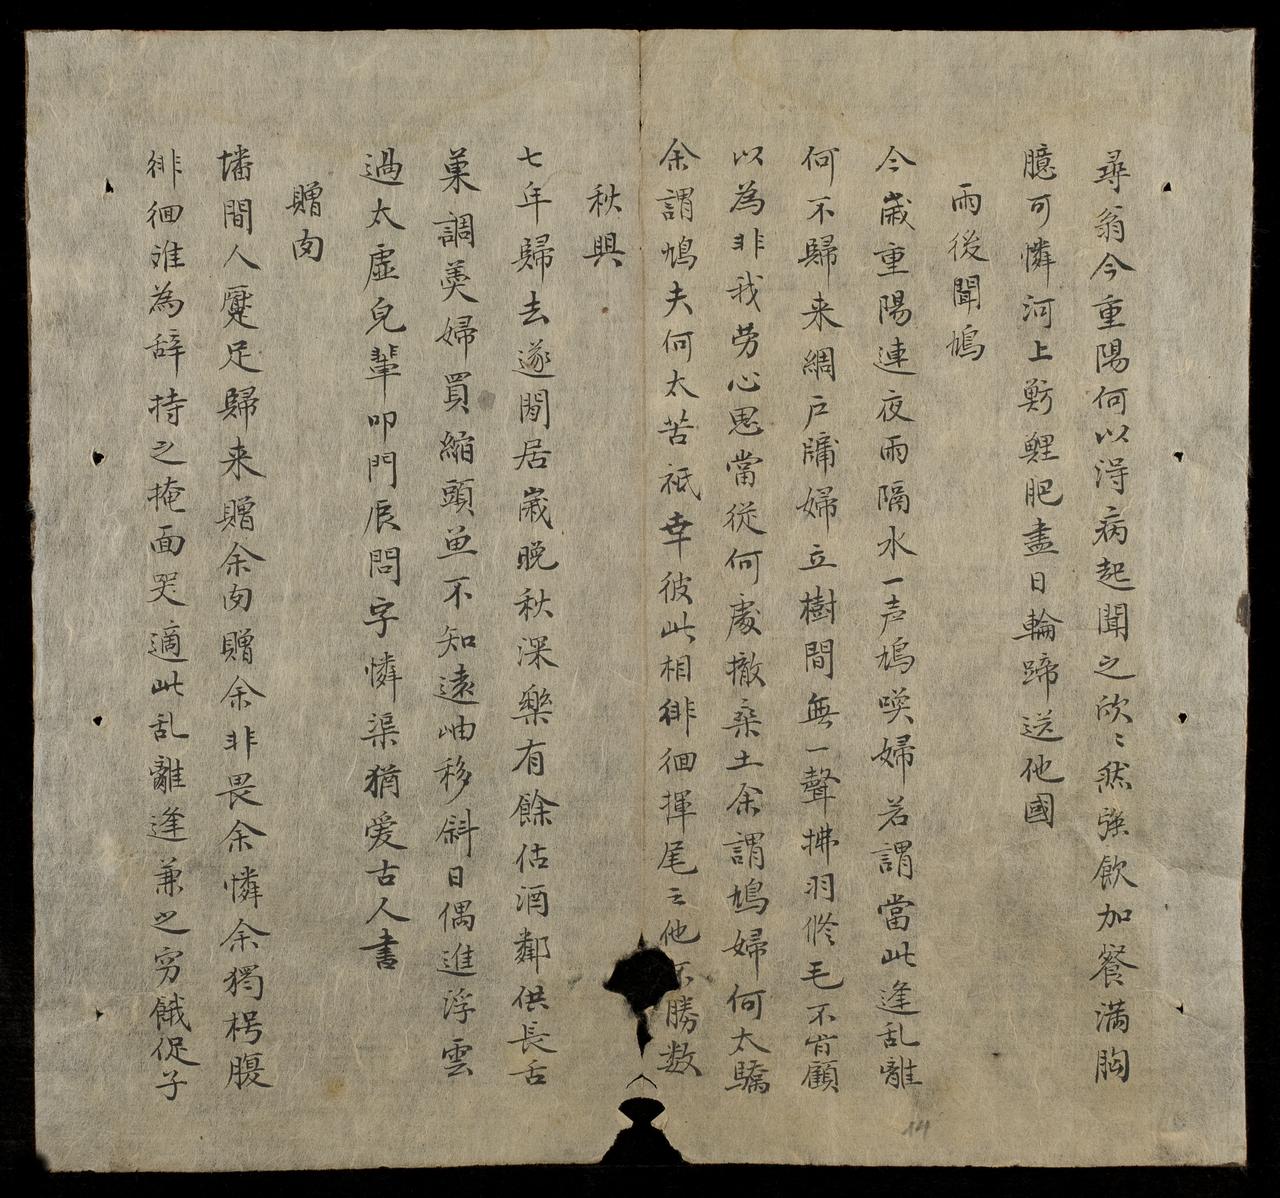 尋翁今重陽何以淂病起聞之欣〻然強飲加餐滿胸
臆可憐河上鮜鯉肥盡日輪蹄送他國
雨後聞鳩
今嵗重陽連夜雨隔水一声鳩喚婦若謂當此逢乱離
何不歸来綢户牖婦立樹間無一聲拂羽修毛不肯顧
以為非我劳心思當従何處撤桒土余謂鳩婦何太驕
余謂鳩夫何太苦祗幸彼此相徘徊揮尾云他不勝数
秋興
七年歸去遂閒居嵗晚秋深樂有餘估酒鄰供長舌
菓調羮婦買縮頭魚不知遠岫移斜日偶進浮雲
過太虚兒軰叩門辰問字憐渠猶爱古人書
贈肉
墦間人饜足歸来贈余肉贈余非畏余憐余獨枵腹
徘徊难為辞持之掩面哭適此乱離逢兼之穷餓促子